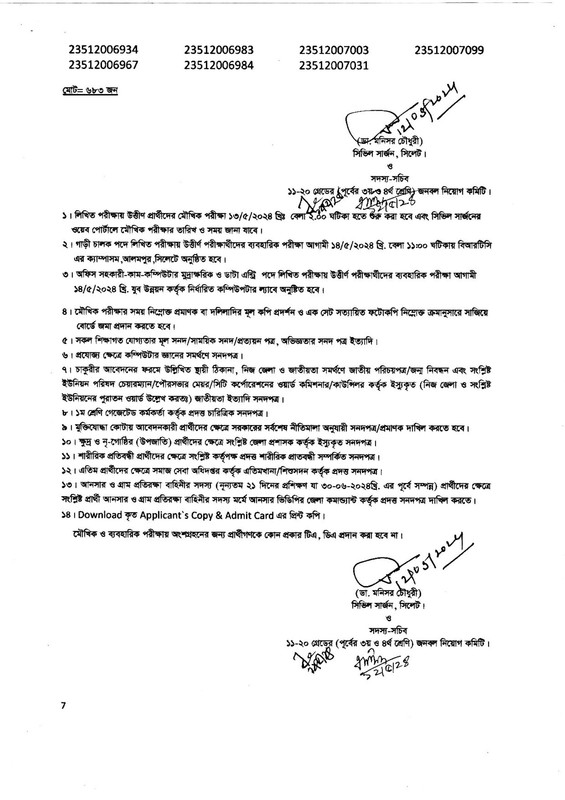 23512006934 23512006983 23512007003 23512007099
23512006967 23512006984 23512007031
মোট= ৬৮৩ জন
12/05/2024
(ডা. মনিসর চৌধুরী)
সিভিল সার্জন, সিলেট।
ও
সদস্য-সচিব
১১-২০ গ্রেডের (পূর্বের ৩য় ও ৪র্থ শ্রেণি) জনবল নিয়োগ কমিটি।
১। লিখিত পরীক্ষায় উত্তীর্ণ প্রার্থীদের মৌখিক পরীক্ষা ১৩/৫/২০২৪ খ্রিঃ বেলা ২.০০ ঘটিকা হতে শুরু করা হবে এবং সিভিল সার্জনের
ওয়েব পোর্টালে মৌখিক পরীক্ষার তারিখ ও সময় জানা যাবে।
২। গাড়ী চালক পদে লিখিত পরীক্ষায় উত্তীর্ণ পরীক্ষার্থীদের ব্যবহারিক পরীক্ষা আগামী ১৪/৫/২০২৪ খ্রি. বেলা ১১:০০ ঘটিকায় বিআরটিসি
এর ক্যাম্পাসম,আলমপুর,সিলেটে অনুষ্ঠিত হবে।
৩। অফিস সহকারী-কাম-কম্পিউটার মুদ্রাক্ষরিক ও ডাটা এন্ট্রি পদে লিখিত পরীক্ষায় উত্তীর্ণ পরীক্ষার্থীদের ব্যবহারিক পরীক্ষা আগামী
১৪/৫/২০২৪ খ্রি. যুব উন্নয়ন কর্তৃক নির্ধারিত কম্পিউপটার ল্যাবে অনুষ্ঠিত হবে।
৪। মৌখিক পরীক্ষার সময় নিম্নোক্ত প্রমাণক বা দলিলাদির মূল কপি প্রদর্শন ও এক সেট সত্যায়িত ফটোকপি নিম্নোক্ত ক্রমানুসারে সাজিয়ে
বোর্ডে জমা প্রদান করতে হবে।
৫। সকল শিক্ষাগত যোগ্যতার মূল সনদ/সাময়িক সনদ/প্রত্যয়ন পত্র, অভিজ্ঞতার সনদ পত্র ইত্যাদি।
৬। প্রযোজ্য ক্ষেত্রে কম্পিউটার জ্ঞানের সমর্থণে সনদপত্র।
৭। চাকুরীর আবেদনের ফরমে উল্লিখিত স্থায়ী ঠিকানা, নিজ জেলা ও জাতীয়তা সমর্থণে জাতীয় পরিচয়পত্র/জন্ম নিবন্ধন এবং সংশ্লিষ্ট
ইউনিয়ন পরিষদ চেয়ারম্যান/পৌরসভার মেয়র/সিটি কর্পোরেশনের ওয়ার্ড কমিশনার/কাউন্সিলর কর্তৃক ইস্যুকৃত (নিজ জেলা ও সংশ্লিষ্ট
ইউনিয়নের পুরাতন ওয়ার্ড উল্লেখ করতঃ) জাতীয়তা ইত্যাদি সনদপত্র।
৮। ১ম শ্রেণি গেজেটেড কর্মকর্তা কর্তৃক প্রদত্ত চারিত্রিক সনদপত্র।
৯। মুক্তিযোদ্ধা কোটায় আবেদনকারী প্রার্থীদের ক্ষেত্রে সরকারের সর্বশেষ নীতিমালা অনুযায়ী সনদপত্র/প্রমাণক দাখিল করতে হবে।
১০। ক্ষুদ্র ও নৃ-গোষ্ঠির (উপজাতি) প্রার্থীদের ক্ষেত্রে সংশ্লিষ্ট জেলা প্রশাসক কর্তৃক ইস্যুকৃত সনদপত্র।
১১। শারীরিক প্রতিবন্ধী প্রার্থীদের ক্ষেত্রে সংশ্লিষ্ট কর্তৃপক্ষ প্রদত্ত শারীরিক প্রাতবন্ধী সম্পর্কিত সনদপত্র।
১২। এতিম প্রার্থীদের ক্ষেত্রে সমাজ সেবা অধিদপ্তর কর্তৃক এতিমখানা/শিশুসদন কর্তৃক প্রদত্ত সনদপত্র।
১৩। আনসার ও গ্রাম প্রতিরক্ষা বাহিনীর সদস্য (নূন্যতম ২১ দিনের প্রশিক্ষণ যা ৩০-০৬-২০২৪খ্রি. এর পূর্বে সম্পন্ন) প্রার্থীদের ক্ষেত্রে
সংশ্লিষ্ট প্রার্থী আনসার ও গ্রাম প্রতিরক্ষা বাহিনীর সদস্য মর্মে আনসার ভিডিপির জেলা কমান্ড্যান্ট কর্তৃক প্রদত্ত সনদপত্র দাখিল করতে।
১৪। Download কৃত Applicant`s Copy & Admit Card এর প্রিন্ট কপি।
মৌখিক ও ব্যবহারিক পরীক্ষায় অংশগ্রহনের জন্য প্রার্থীগণকে কোন প্রকার টিএ, ডিএ প্রদান করা হবে না।
12/05/2024
(ডা. মনিসর চৌধুরী)
সিভিল সার্জন, সিলেট।
ও
সদস্য-সচিব
১১-২০ গ্রেডের (পূর্বের ৩য় ও ৪র্থ শ্রেণি) জনবল নিয়োগ কমিটি।
7